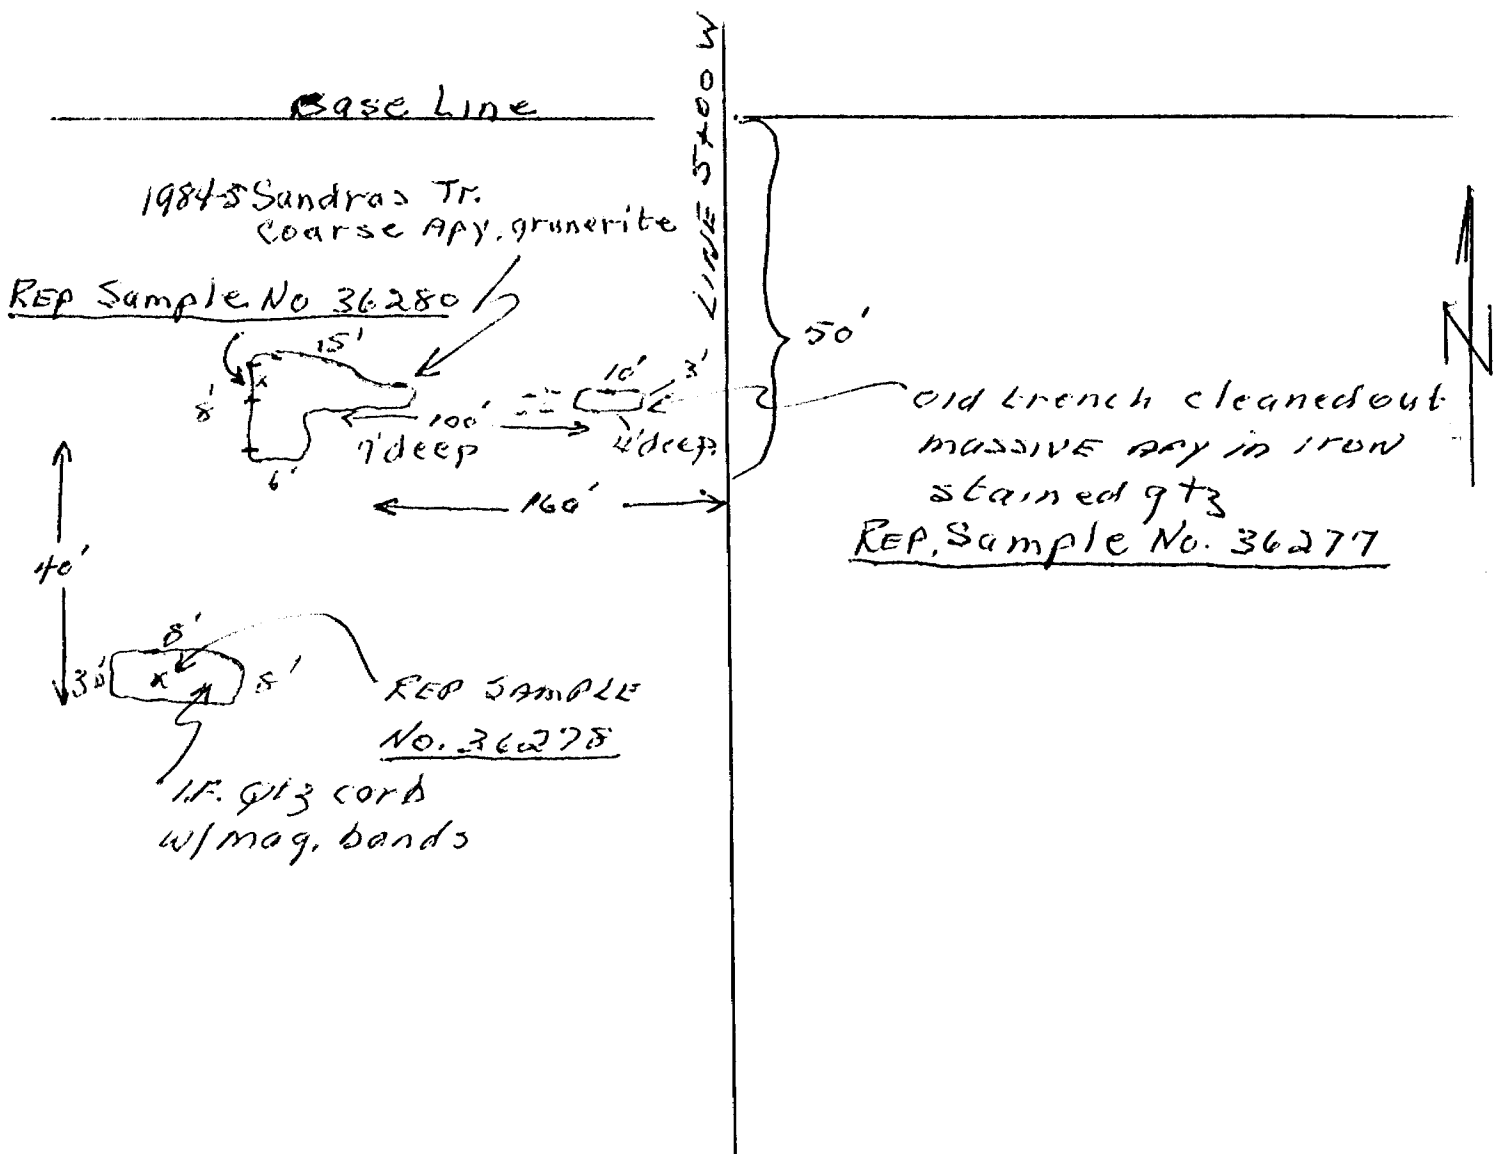 LINE 5+00 W
Base Line
1984-5 Sandras Tr.
Coarse Apy, grunerite
REP Sample No 36280
15'
8'
6'
100'
7' deep
10'
3'
4' deep
50'
Old trench cleaned out
massive Apy in iron
stained qtz
REP. Sample No. 36277
N
160'
40'
8'
8'
REP SAMPLE
No. 36278
I.F. Qtz carb
w/ mag. bands